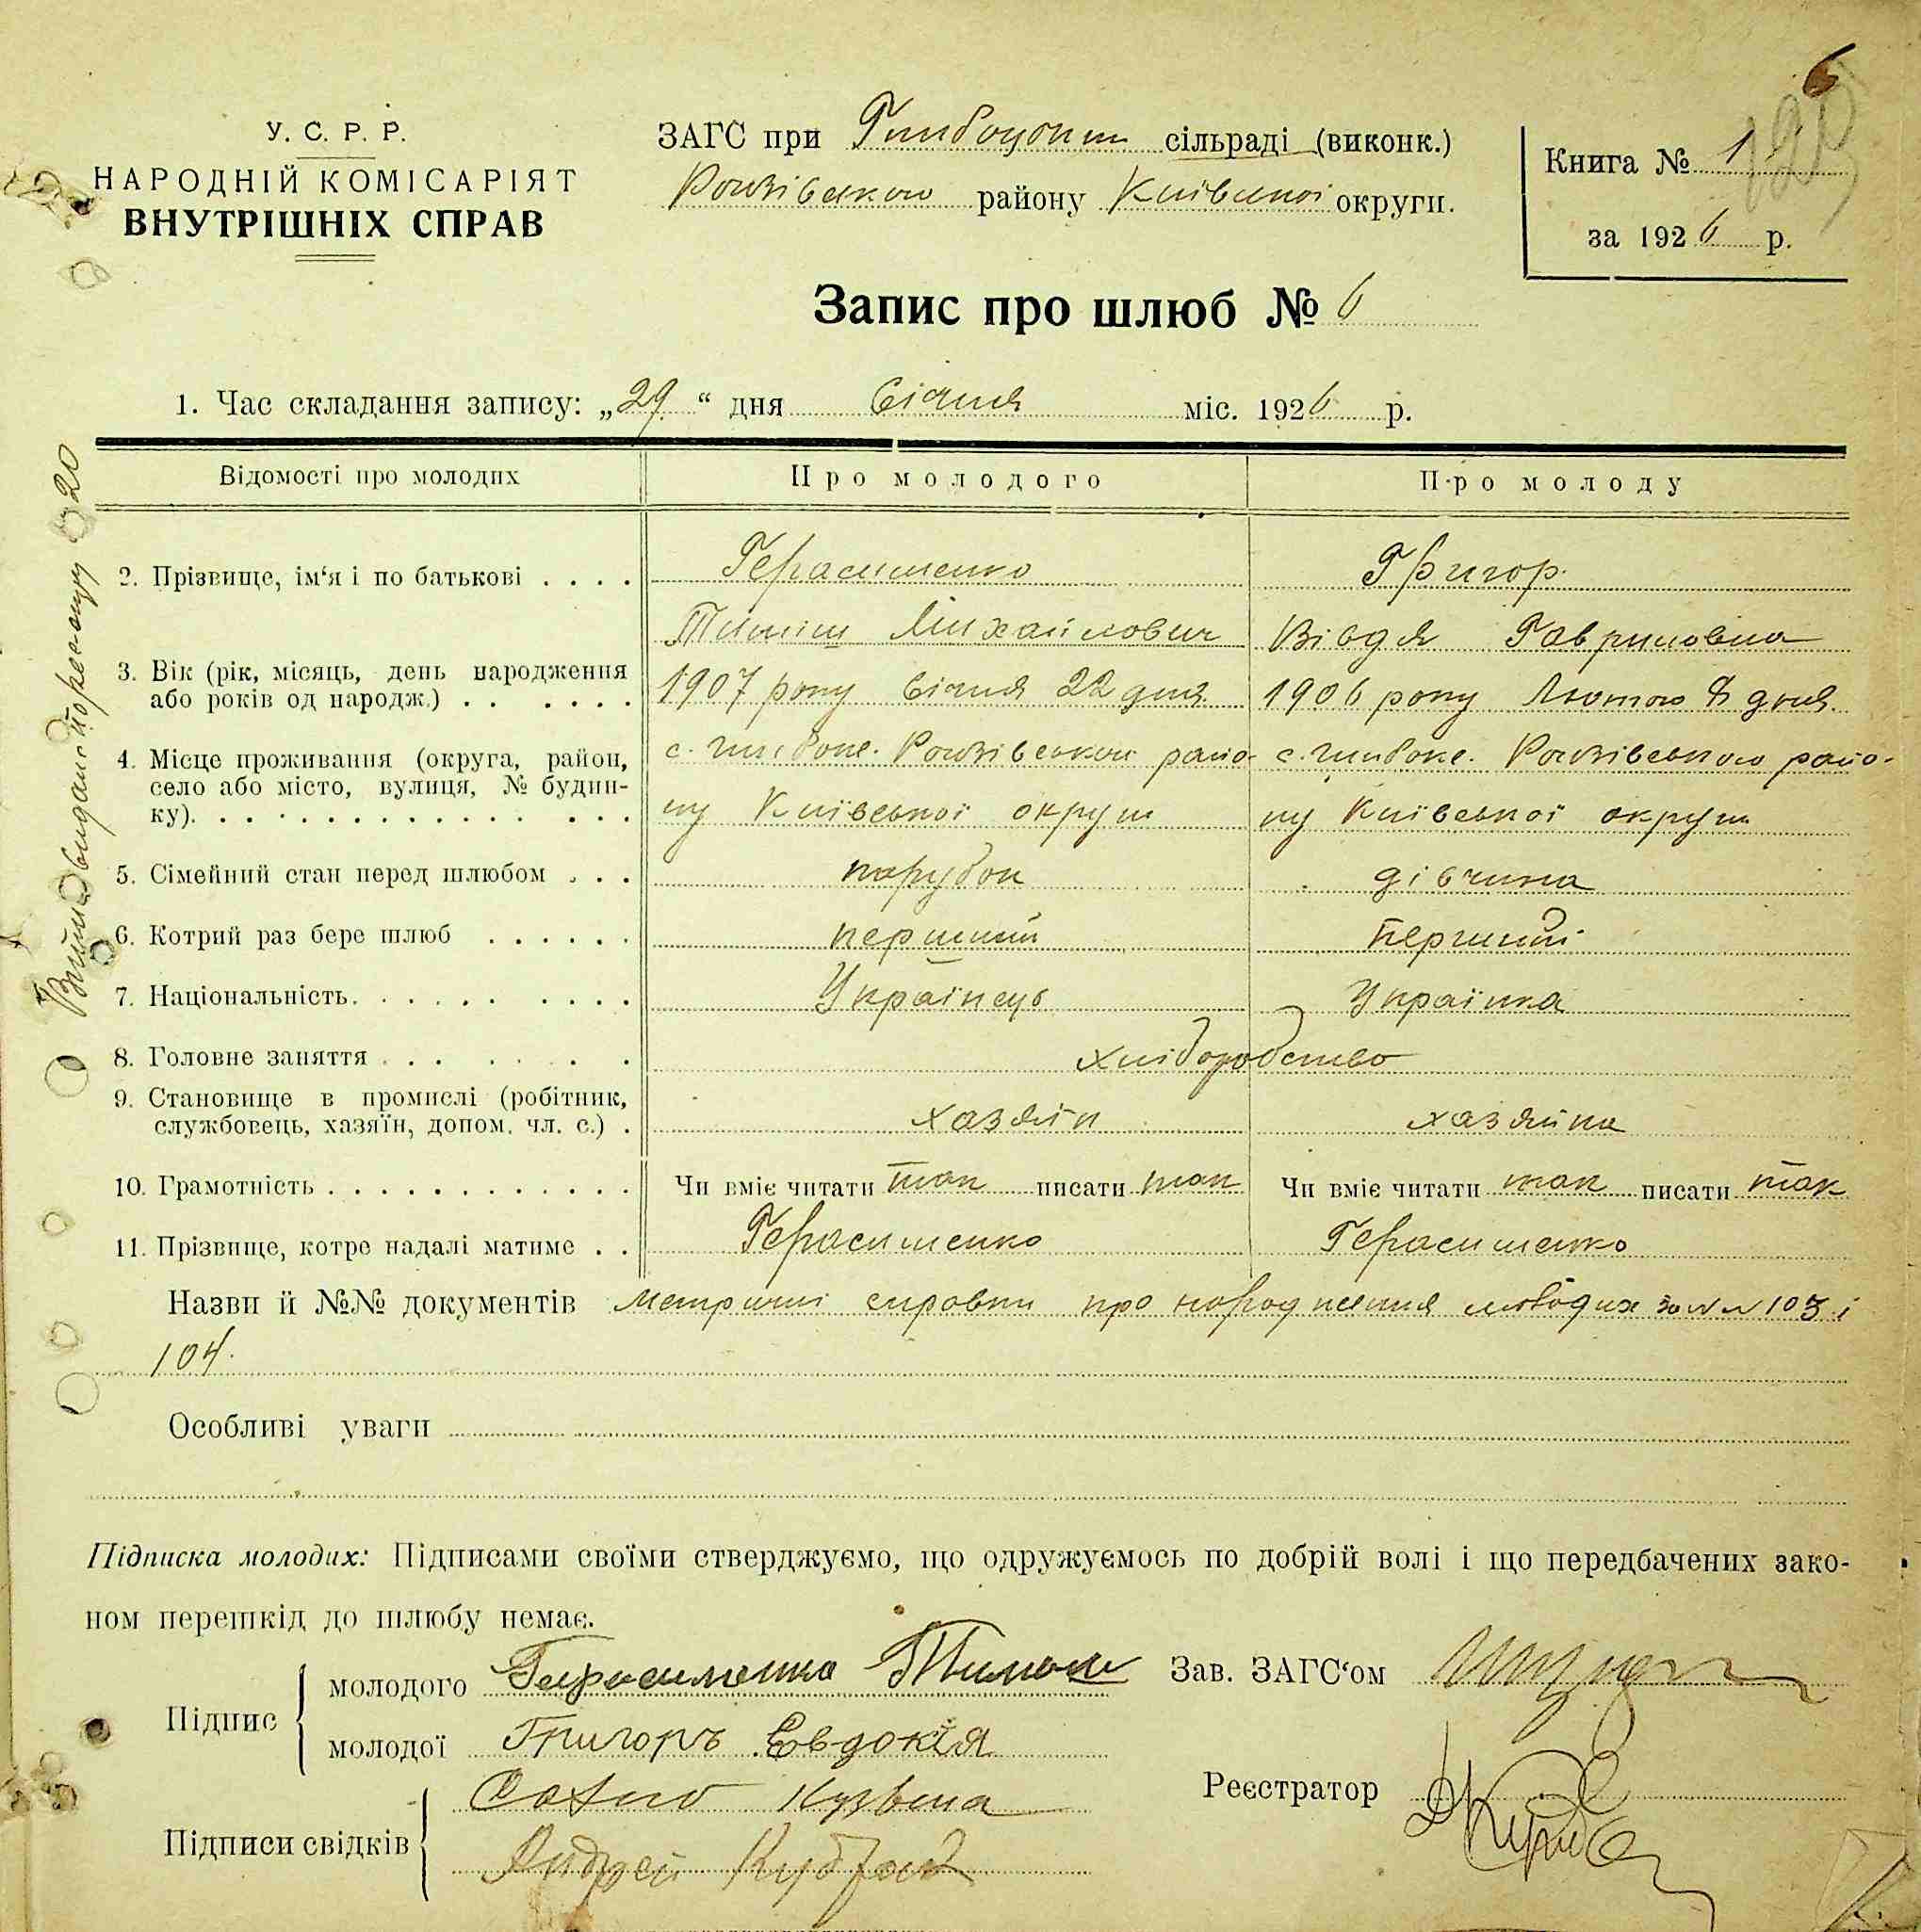 6
У. С. Р. Р.
НАРОДНІЙ КОМІСАРІЯТ
ВНУТРІШНІХ СПРАВ
ЗАГС при Глибоцькій сільраді (виконк.)
Рогозівського району Київської округи.
Книга № 1
129
за 1926 р.
Запис про шлюб № 6
1. Час складання запису: „29“ дня Січня міс. 1926 р.
Відомості про молодих Про молодого Про молоду
2. Прізвище, ім‘я і по батькові . . . . Герасименко Григор
Тиміш Михайлович Вівдя Гаврилівна
3. Вік (рік, місяць, день народження
або років од народж.) . . . . . . 1907 року Січня 22 дня 1906 року Лютого 8 дня
4. Місце проживання (округа, район, с. Глибоке. Рогозівського райо- с. Глибоке. Рогозівського райо-
село або місто, вулиця, № будин-
ку). . . . . . . . . . . . . . . . ну Київської округи ну Київської округи
5. Сімейний стан перед шлюбом . . . парубок дівчина
6. Котрий раз бере шлюб . . . . . . перший перший
7. Національність. . . . . . . . . . Українець Українка
8. Головне заняття . . . . . . хліборобство
9. Становище в промислі (робітник,
службовець, хазяїн, допом. чл. с.) . хазяїн хазяйка
10. Грамотність . . . . . . . . . . . . . Чи вміє читати так писати так Чи вміє читати так писати так
11. Прізвище, котре надалі матиме . . Герасименко Герасименко
Назви й №№ документів метричні справки про народження молодих за №№ 103 і
104.
Особливі уваги
Підписка молодих: Підписами своїми стверджуємо, що одружуємось по добрій волі і що передбачених зако-
ном перешкід до шлюбу немає.
Підпис
молодого Герасименко Тимош
молодої Григоръ Евдокія
Зав. ЗАГС‘ом
Реєстратор
Підписи свідків
Кузьма
Андрей